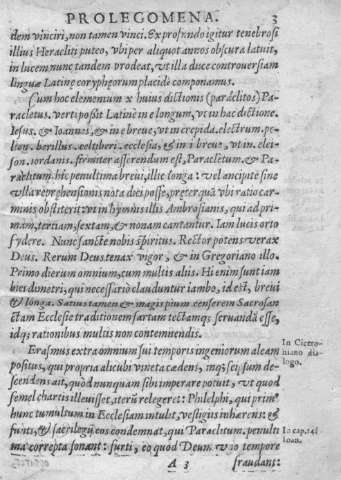 PROLEGOMENA. 3
dem vinciri, non tamen vinci. Ex profundo igitur tenebrosi
illius Heracliti puteo, vbi per aliquot annos obscura latuit,
in lucem nunc tandem prodeat, vt illa duce controversiam
linguæ Latinæ coryphæorum placide componamus.
Cum hoc elementum x huius dictionis (paráclitos) Pa-
racletus. verti possit Latine in e longum, vt in hac dictione.
Iesus. & Ioannes, & in e breue, vt in crepida. electrum. pe-
beryllus. celtiberi. ecclesia, & in i breue, vt in. elei-
son. iordanis. firmiter asserendum est, Paracletum, & Pa-
raclitum, hic penultima breui, illic longa: vel ancipite sine
vlla reprehensionis nota dici posse, præterquā vbi ratio car-
minis obstiterit vt in hymnis illis Ambrosianis, qui ad pri-
mam, tertiam, sextam, & nonam cantantur. Iam lucis orto
sydere. Nunc sancte nobis spiritus. Rector potens verax
Deus. Rerum Deus tenax vigor, & in Gregoriano illo.
Primo dierum omnium, cum multis aliis. Hi enim sunt iam
bici dimetri, qui necessariò clauduntur iambo, id est, breui
& longa. Satius tamen & magis pium censerem Sacrosan-
ctam Ecclesiæ traditionem sartum tectamq; seruandā esse,
idq; rationibus multis non contemnendis.
Erasmus extra omnium sui temporis ingeniorum aleam
positus, qui propria alicubi vineta cædens, inq; seipsum de-
scendens ait, quod nunquam sibi imperare potuit, vt quod
semel chartis illeuisset, iterū relegeret: Philelphi, qui prim
hunc tumultum in Ecclesiam intulit, vestigiis inhærens: &
furti, & sacrilegij eos condemnat, qui Paraclitum, penulti
ma correpta sonant: furti, eo quòd Deum vno tempore
A 3 fraudant:
In Cicero-
niano dia-
logo.
In cap. 14.
Ioan.